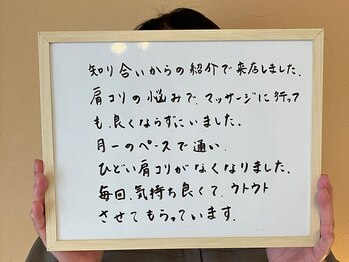 知り合いからの紹介で来店しました、
肩コリの悩みで、マッサージに行って
も、良くならずにいました。
月一のペースで通い、
ひどい肩コリがなくなりました。
毎回、気持ち良くて、ウトウト
させてもらっています。